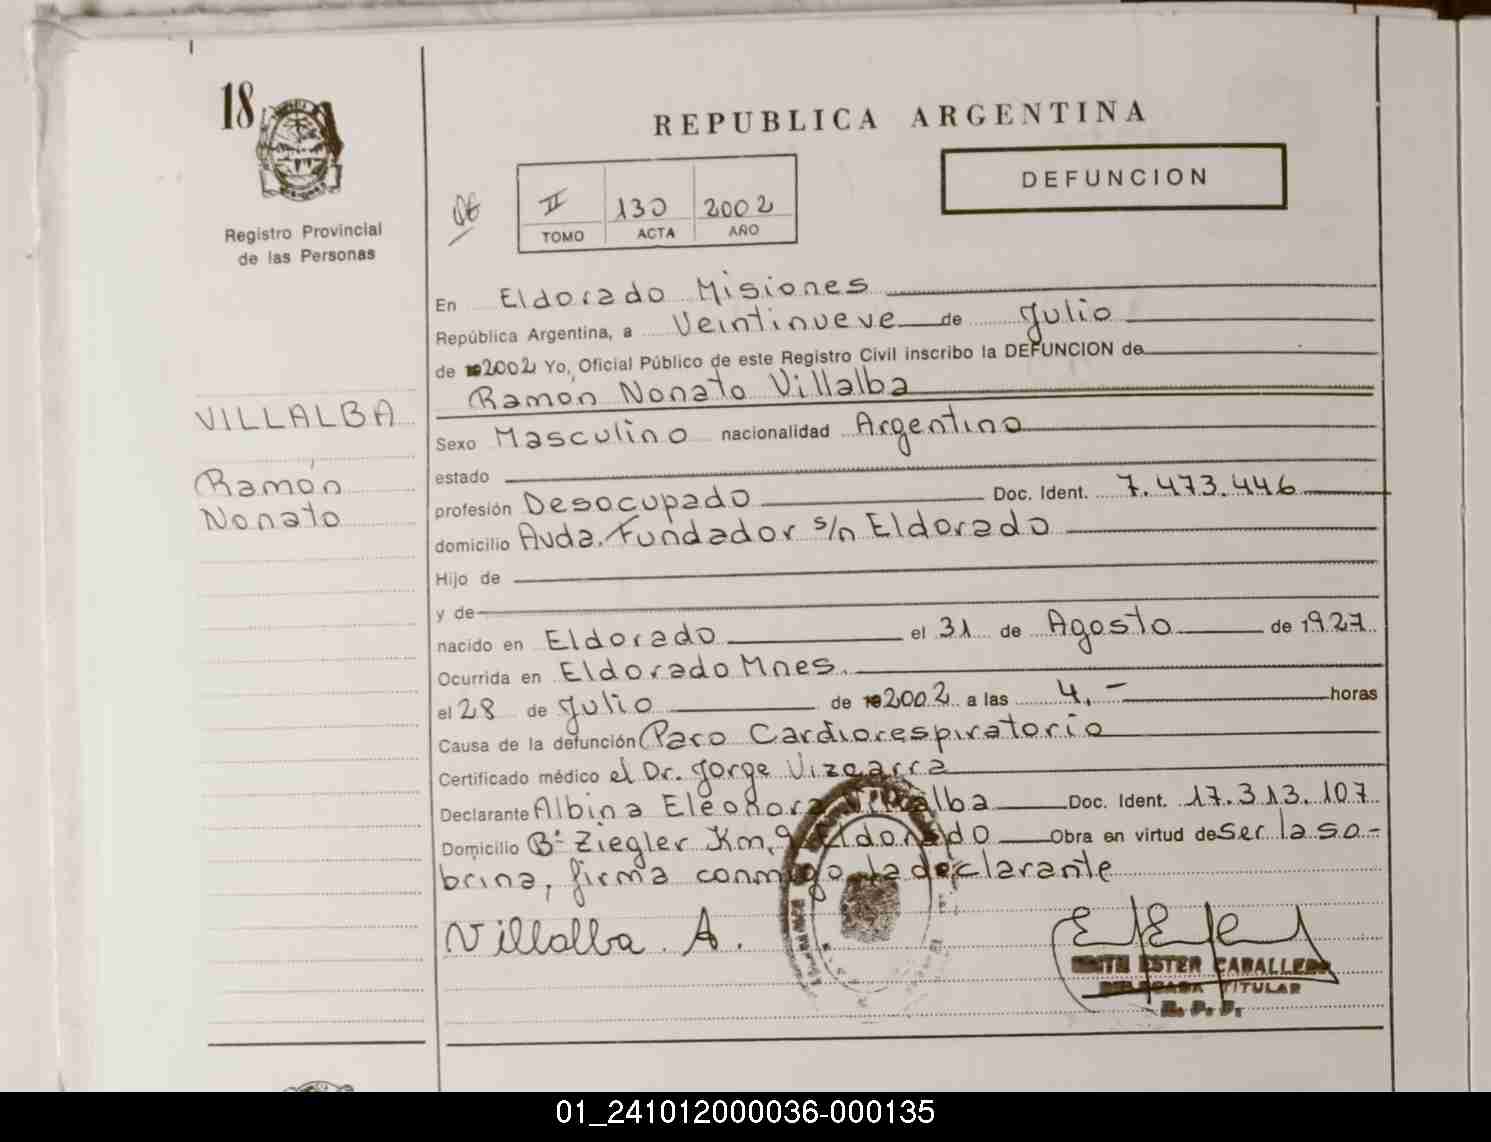 18
REPUBLICA ARGENTINA
DEFUNCION
II 130 2002
TOMO ACTA AÑO
Registro Provincial
de las Personas
En Eldorado Misiones
República Argentina, a Veintinueve de Julio
de 2002 Yo, Oficial Público de este Registro Civil inscribo la DEFUNCION de
Ramón Nonato Villalba
VILLALBA
Ramón
Nonato
Sexo Masculino nacionalidad Argentino
estado
profesión Desocupado Doc. Ident. 7.473.446
domicilio Avda. Fundador s/n Eldorado
Hijo de
y de
nacido en Eldorado el 31 de Agosto de 1927
Ocurrida en Eldorado Mnes.
el 28 de Julio de 2002 a las 4,- horas
Causa de la defunción Paro Cardiorespiratorio
Certificado médico el Dr. Jorge Vizcarra
Declarante Albina Eleonora Villalba Doc. Ident. 17.313.107
Domicilio Bº Ziegler Km. 9 Eldorado Obra en virtud de ser la so-
brina, firma conmigo la declarante
Villalba A.
EDITH ESTER CABALLERO
DELEGADA TITULAR
R. P. P.
01_241012000036-000135